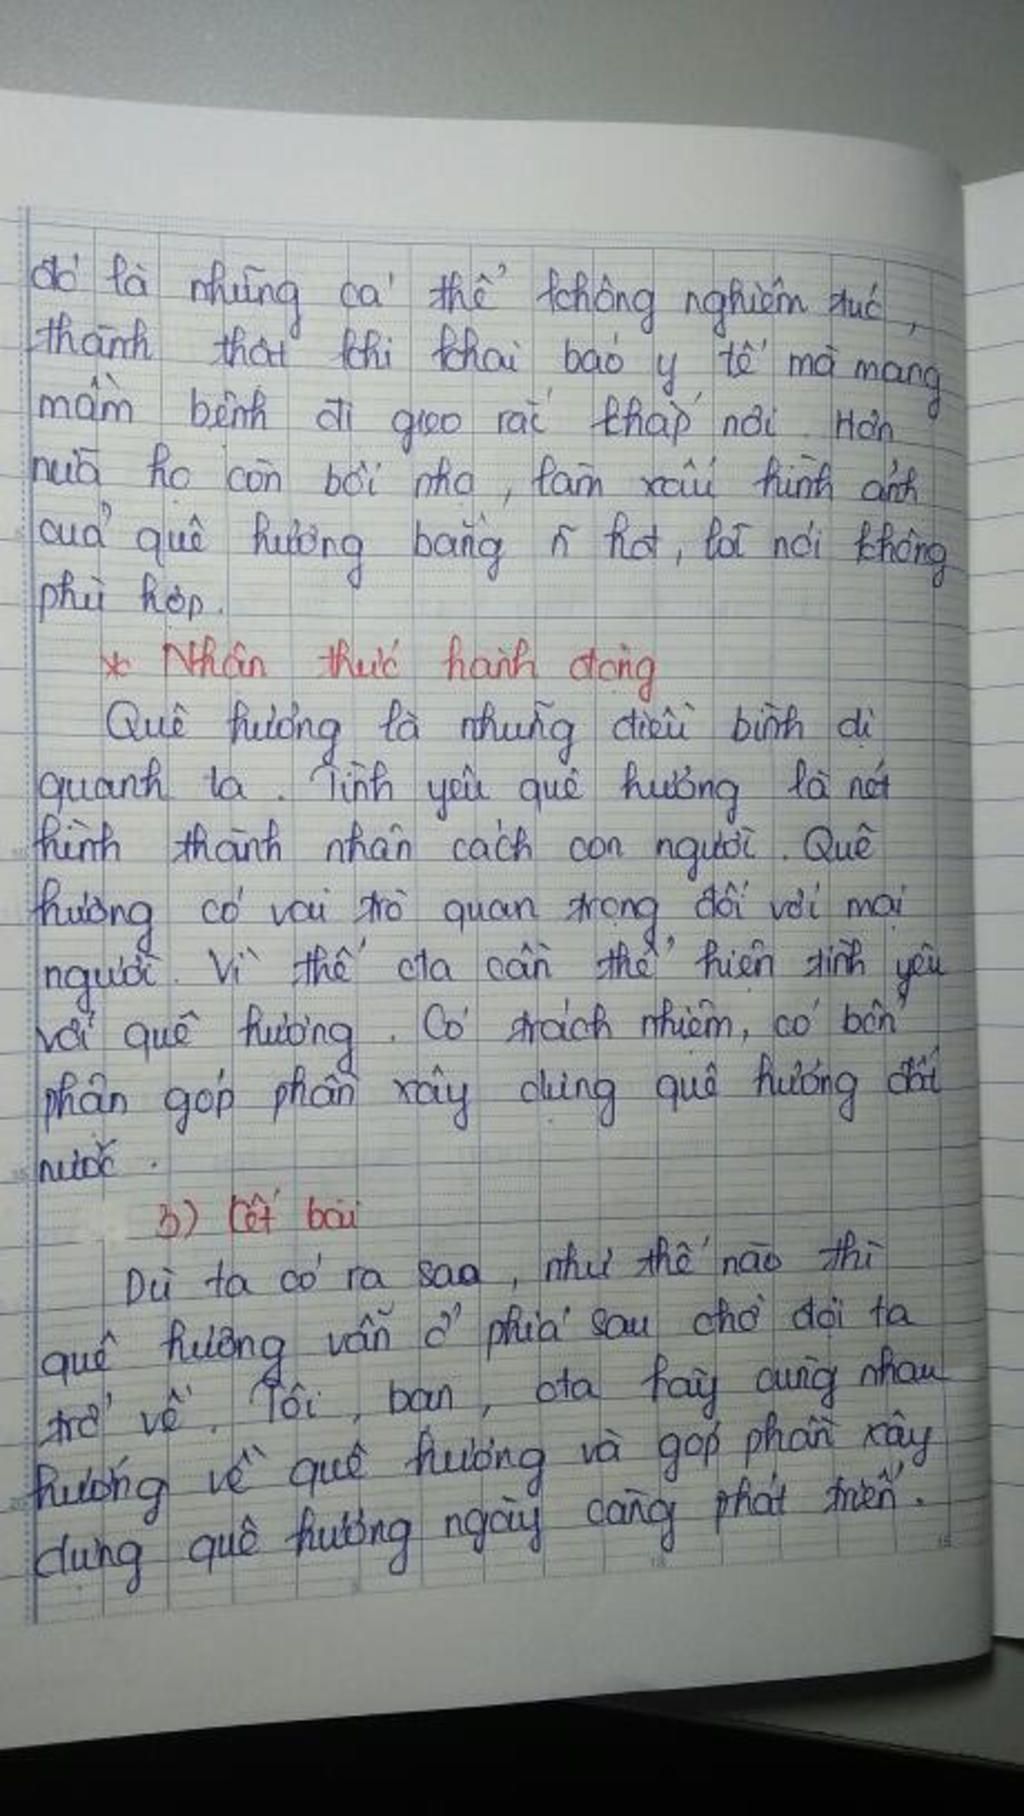 đó là những cá thể không nghiêm túc,
thành thật khi khai báo y tế mà mang
mầm bệnh đi gieo rắc khắp nơi. Hơn
nữa họ còn bôi nhọ, làm xấu hình ảnh
của quê hương bằng n hot, lời nói không
phù hợp.
* Nhận thức hành động
Quê hương là những điều bình dị
quanh ta. Tình yêu quê hương là nơi
hình thành nhân cách con người. Quê
hương có vai trò quan trọng đối với mọi
người. Vì thế cta cần thể hiện tình yêu
với quê hương. Có trách nhiệm, có bổn
phận góp phần xây dựng quê hương đất
nước.
3) Kết bài
Dù ta có ra sao, như thế nào thì
quê hương vẫn ở phía sau chờ đợi ta
trở về. Tôi, bạn, cta hãy cùng nhau
hướng về quê hương và góp phần xây
dựng quê hương ngày càng phát triển.